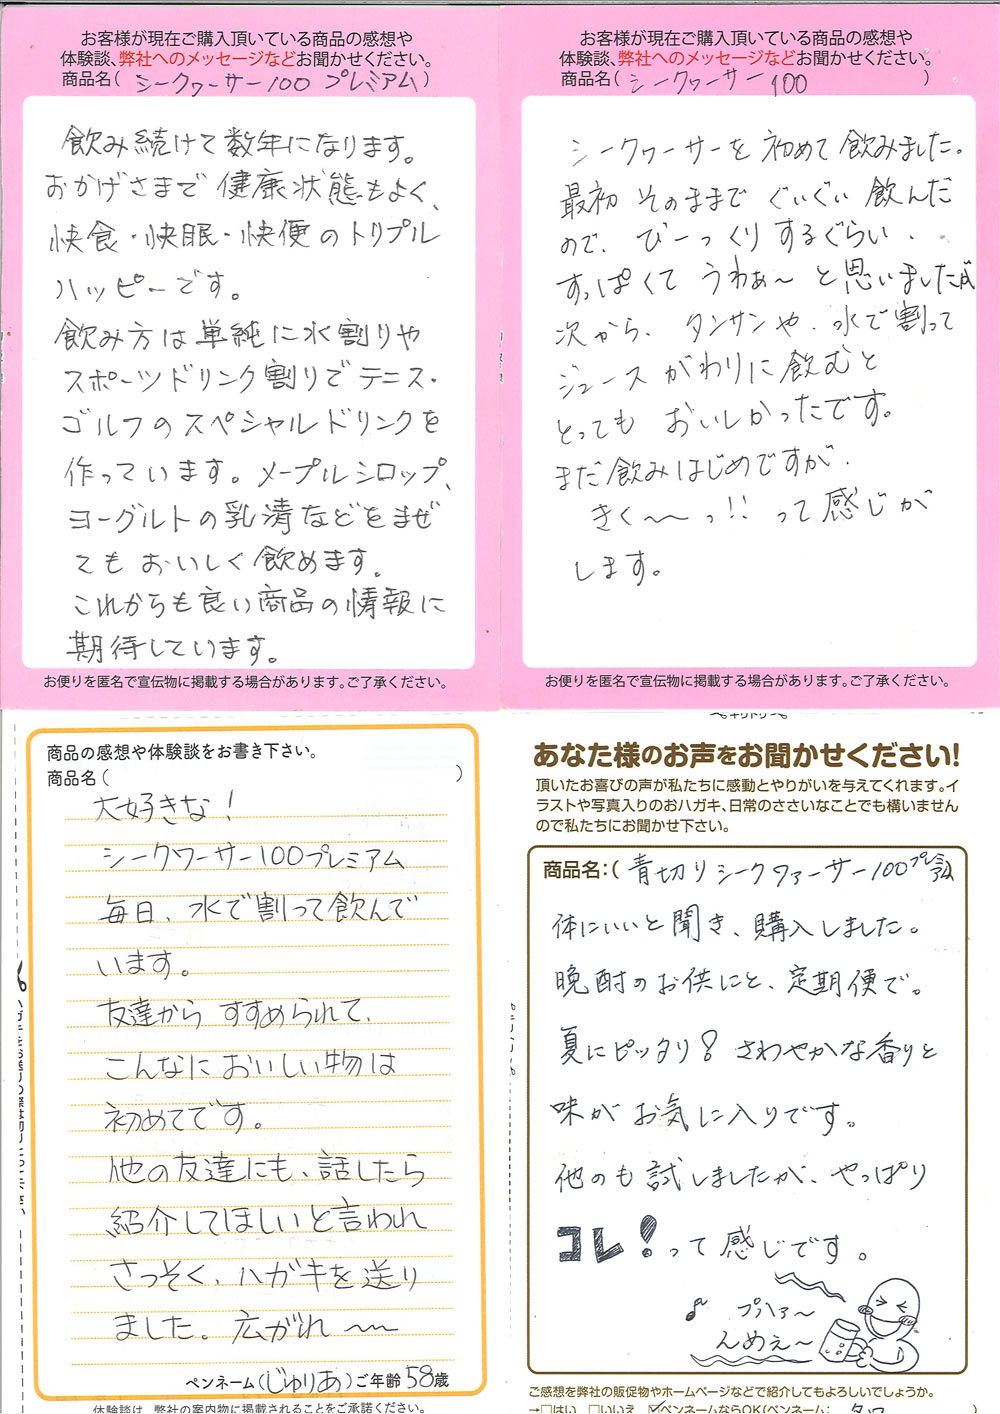 お客様が現在ご購入頂いている商品の感想や
体験談、弊社へのメッセージなどお聞かせください。
商品名( シークワーサー100 プレミアム)
飲み続けて数年になります。
おかげさまで健康状態もよく、
快食・快眠・快便のトリプル
ハッピーです。
飲み方は単純に水割りや
スポーツドリンク割りでテニス・
ゴルフのスペシャルドリンクを
作っています。メープルシロップ、
ヨーグルトの乳清などをまぜ
てもおいしく飲めます。
これからも良い商品の情報に
期待しています。
お便りを匿名で宣伝物に掲載する場合があります。ご了承ください。
お客様が現在ご購入頂いている商品の感想や
体験談、弊社へのメッセージなどお聞かせください。
商品名( シークヮーサー 100 )
シークヮーサーを初めて飲みました。
最初そのままでぐいぐい飲んだ
ので、びーっくりするぐらい、
すっぱくてうわぁ〜と思いましたが
次から、タンサンや、水で割って
ジュースがわりに飲むと
とってもおいしかったです。
まだ飲みはじめですが、
きく〜〜っ!!って感じが
します。
お便りを匿名で宣伝物に掲載する場合があります。ご了承ください。
商品の感想や体験談をお書き下さい。
商品名( )
大好きな!
シークワーサー100プレミアム
毎日、水で割って飲んで
います。
友達からすすめられて、
こんなにおいしい物は
初めてです。
他の友達にも、話したら
紹介してほしいと言われ
さっそく、ハガキを送り
ました。広がれ〜〜
ペンネーム(じゅりあ)ご年齢58歳
体験談は、弊社の案内物に掲載されることをご承諾ください。
キリトリ
あなた様のお声をお聞かせください!
頂いたお喜びの声が私たちに感動とやりがいを与えてくれます。イ
ラストや写真入りのおハガキ、日常のささいなことでも構いません
ので私たちにお聞かせ下さい。
商品名:( 青切りシークヮァーサー100プレミアム
体にいいと聞き、購入しました。
晩酌のお供にと、定期便で。
夏にピッタリ!さわやかな香りと
味がお気に入りです。
他のも試しましたが、やっぱり
コレ!って感じです。
♪ プハァ〜
んめぇ〜
ご感想を弊社の販促物やホームページなどで紹介してもよろしいでしょうか。
→□はい □いいえ ☑ペンネームならOK(ペンネーム: )